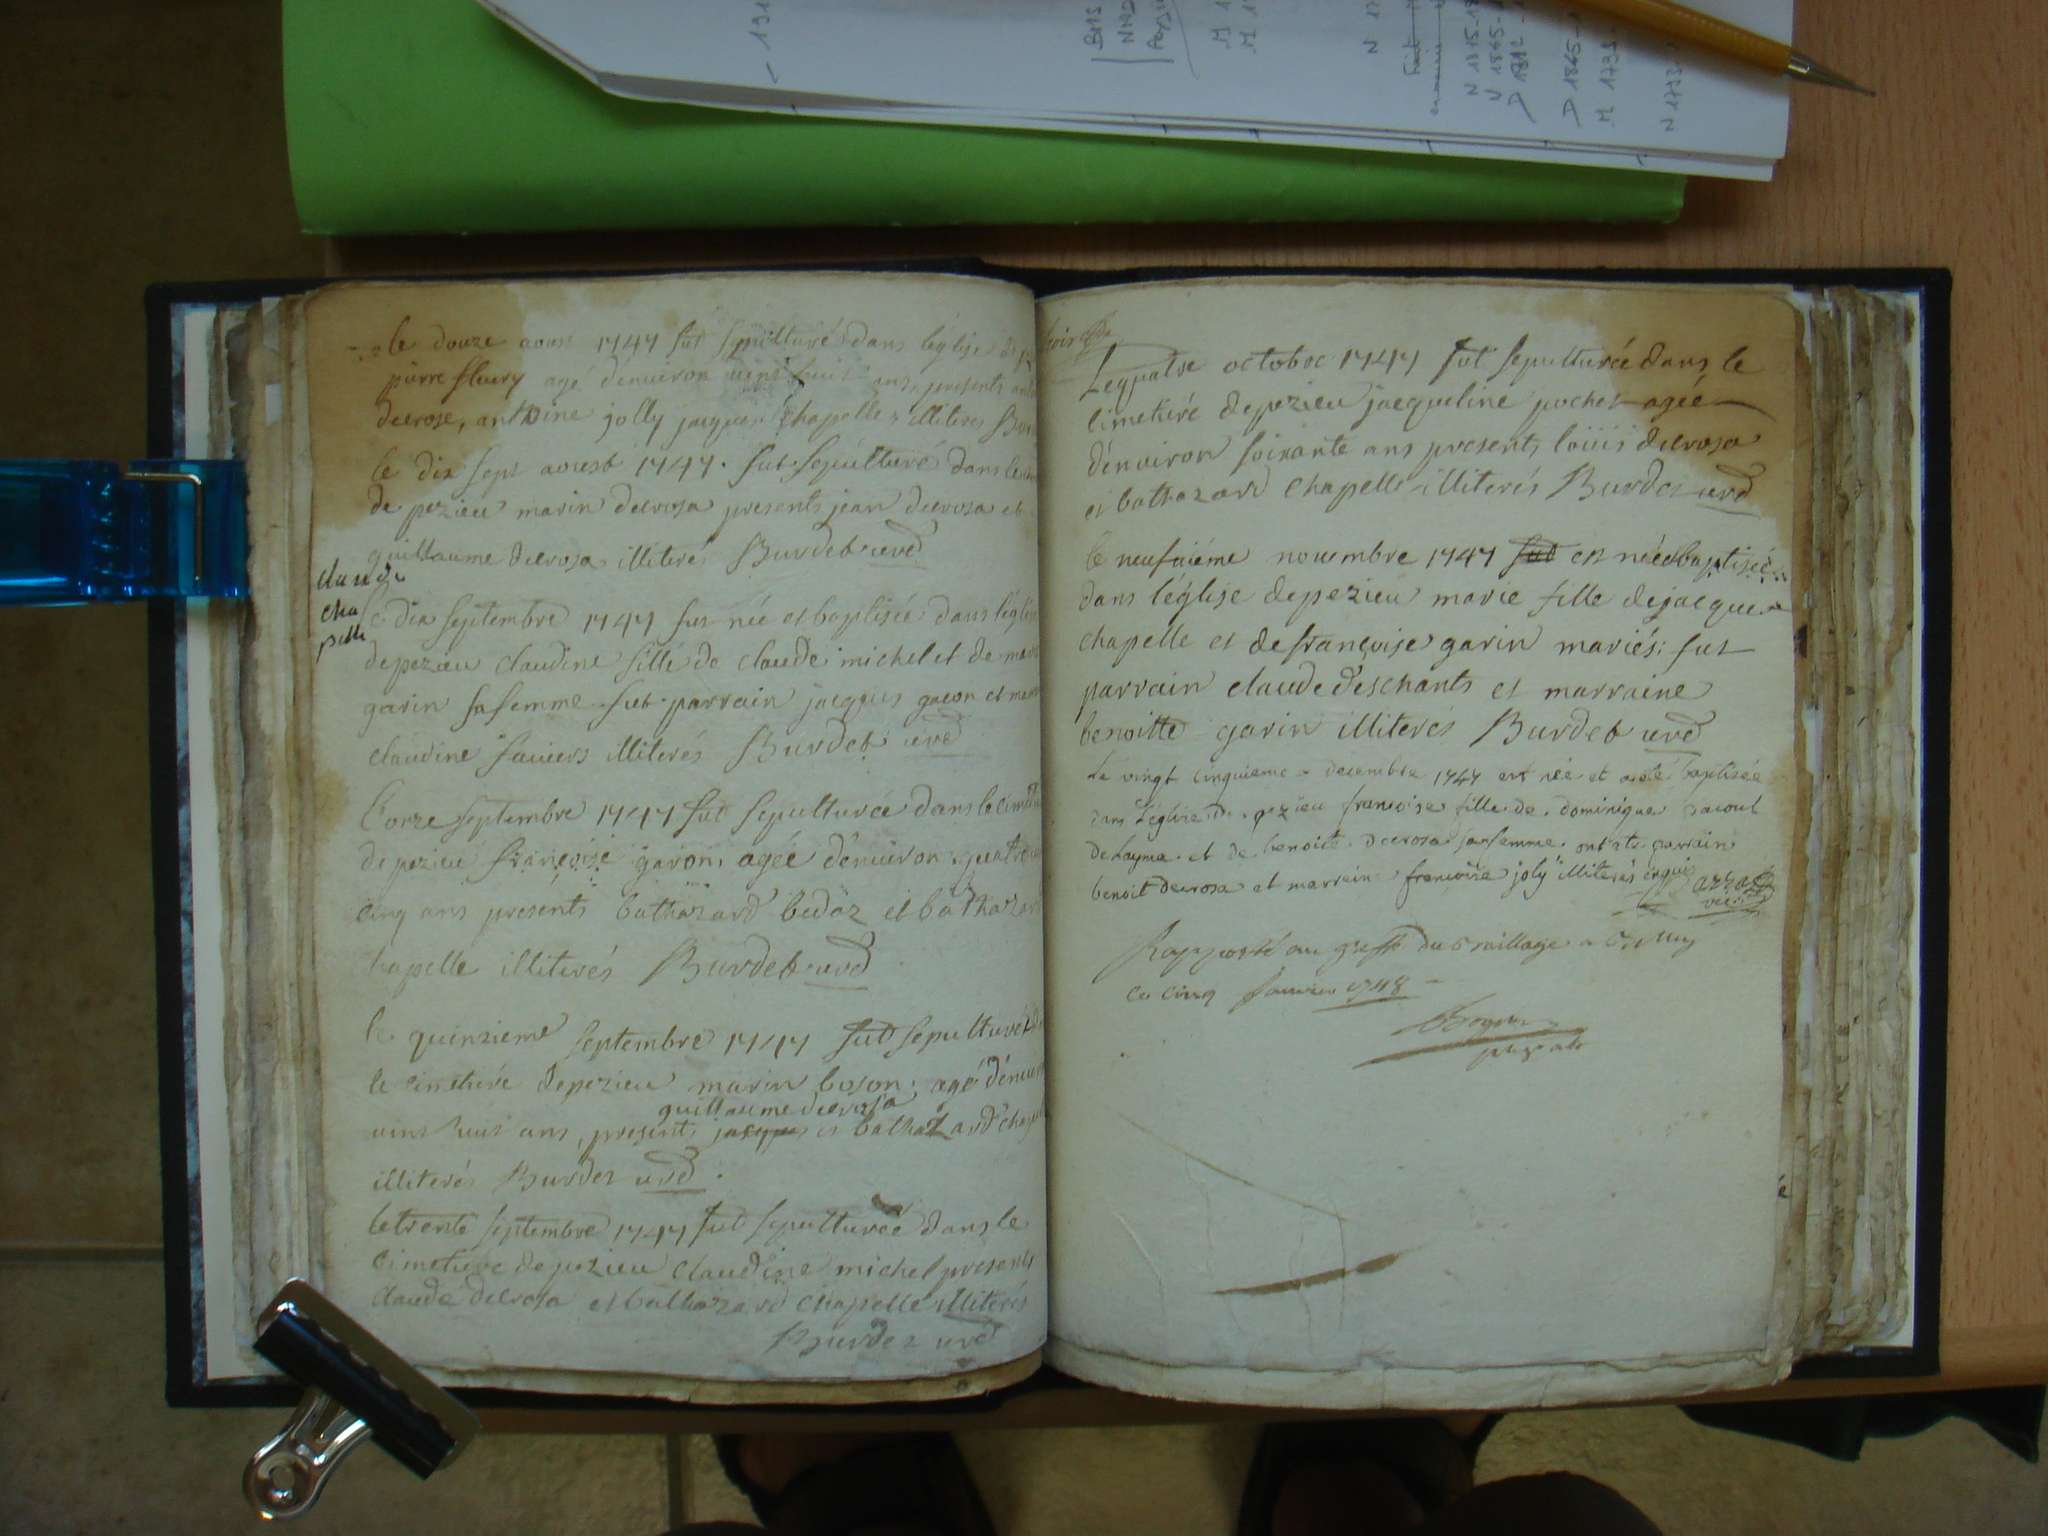 le douze aoust 1747 fut sepulturé dans léglise
pierre fleury agé denviron vint huit ans, presents
decrose, antoine jolly jacques chapelle illiterés
le dix sept aoust 1747. fut sepulturé dans
de pezieu marin decrosa presents jean decrosa et
guillaume decrosa illiterés Burdet curé
claude
cha
pelle
le dix septembre 1747 fut née et baptisée dans léglise
de pezieu claudine fille de claude michel et de
garin sa femme fut parrain jacques gacon et
claudine illiterés Burdet curé
l'onze septembre 1747 fut sepulturée dans le
de pezieu françoise garon, agée dénviron
cinq ans presents bathazard bedoz et bathazard
chapelle illiterés Burdet curé
le quinzieme septembre 1747 fut sepulturé
le cimetiere de pezieu marin boson, agé dénviron
guillaume decrosa
vint huit ans, presents jacques et bathazard
illiterés Burdet curé
le trente septembre 1747 fut sepulturée dans le
cimetiere de pezieu claudine michel presents
claude decrosa et bathazard chapelle illiterés
Burdet curé
Le quatre octobre 1747 fut sepulturée dans le
cimetiré de pezieu jacqueline pochet agée
dénviron soixante ans presents loüis decrosa
et bathazard chapelle illiterés Burdet curé
le neufviéme novembre 1747 fut est née et baptisée
dans léglise de pezieu marie fille de jacque
chapelle et de françoise garin mariés; fut
parrain claude deschants et marraine
benoitte garin illiterés Burdet curé
Le vingt cinquieme decembre 1747 est née et a eté baptisée
dans L'églire de pezieu francoise fille de dominique
de et de benoite decrosa sa femme ont ete parrain
benoit decrosa et marrein francoise joly illiterés
Rapporté au greffe du Bailliage a
ce cinq Janvier 1748
BMS
N 1815-18
N 1865-
D 1812
D 1865-
M 1793
N 1773